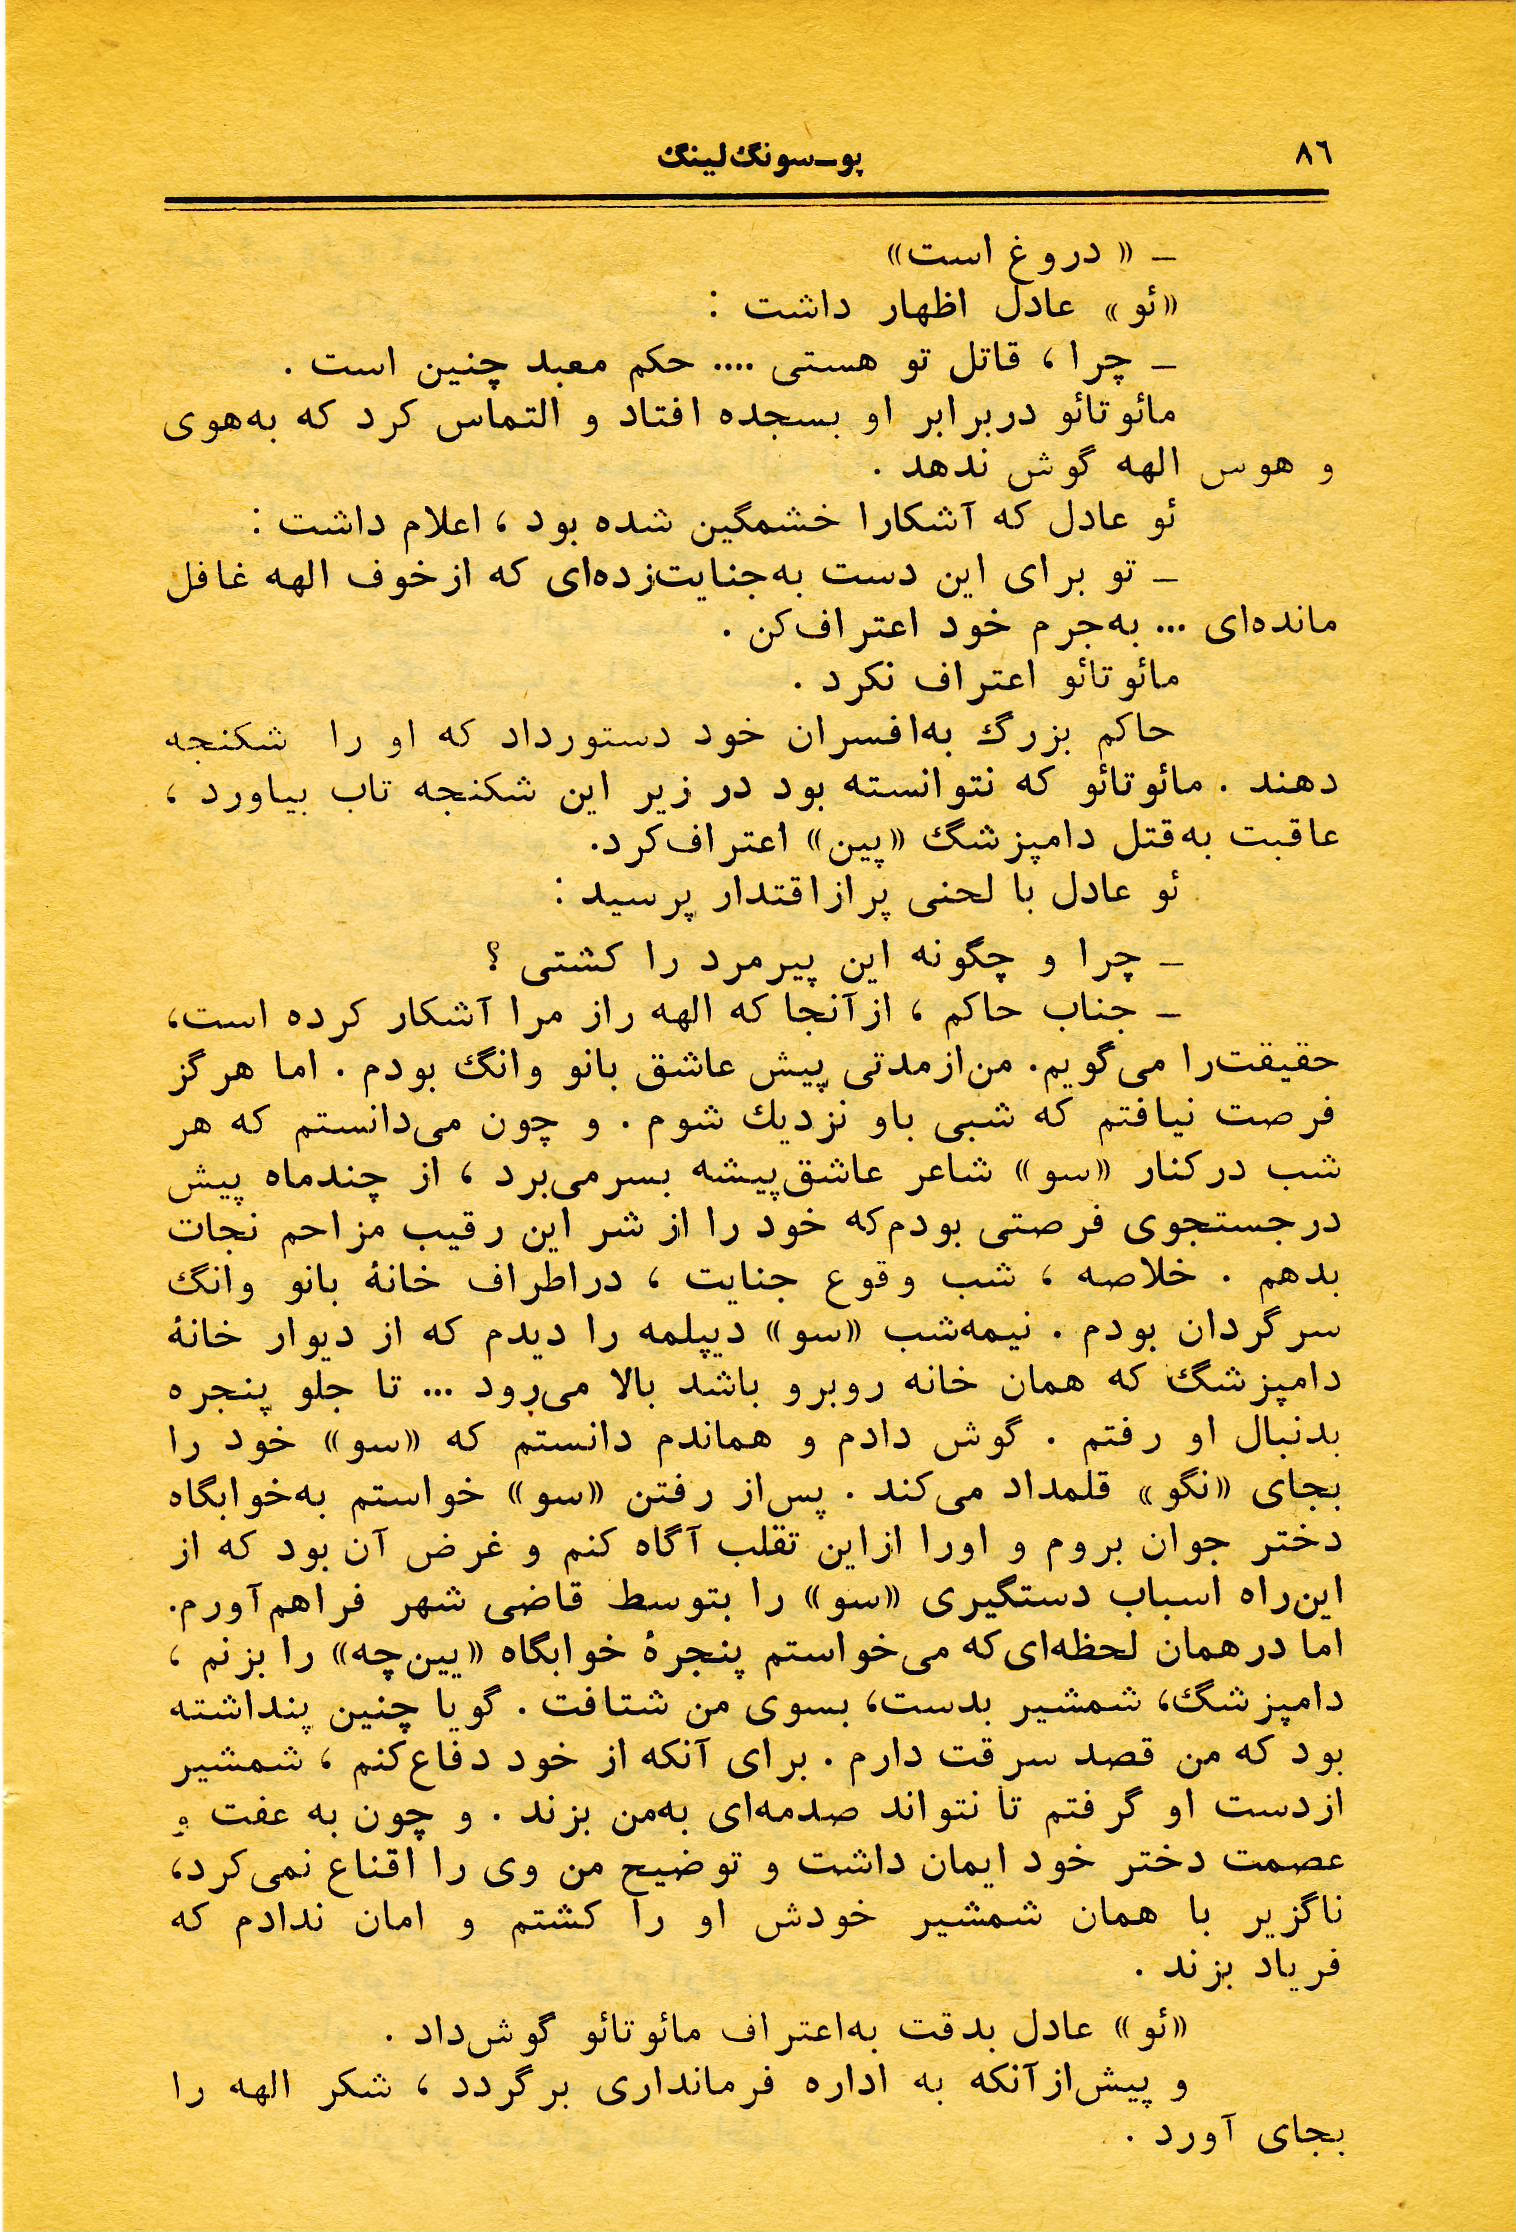 ۸۶
پو-سونگ‌لینگ
– « دروغ است»
«ئو» عادل اظهار داشت :
– چرا ، قاتل تو هستی .... حکم معبد چنین است .
مائوتائو دربرابر او بسجده افتاد و التماس کرد که به‌هوی
و هوس الهه گوش ندهد .
ئو عادل که آشکارا خشمگین شده بود ، اعلام داشت :
– تو برای این دست به‌جنایت‌زده‌ای که ازخوف الهه غافل
مانده‌ای ... به‌جرم خود اعتراف‌کن .
مائوتائو اعتراف نکرد .
حاکم بزرگ به‌افسران خود دستورداد که او را شکنجه
دهند . مائوتائو که نتوانسته بود در زیر این شکنجه تاب بیاورد ،
عاقبت به‌قتل دامپزشگ «پین» اعتراف‌کرد.
ئو عادل با لحنی پرازاقتدار پرسید :
– چرا و چگونه این پیرمرد را کشتی ؟
– جناب حاکم ، ازآنجا که الهه راز مرا آشکار کرده است،
حقیقت‌را می‌گویم. من‌ازمدتی پیش عاشق بانو وانگ بودم . اما هرگز
فرصت نیافتم که شبی باو نزدیك شوم . و چون می‌دانستم که هر
شب درکنار «سو» شاعر عاشق‌پیشه بسرمی‌برد ، از چندماه پیش
درجستجوی فرصتی بودم‌که خود را از شر این رقیب مزاحم نجات
بدهم . خلاصه ، شب وقوع جنایت ، دراطراف خانهٔ بانو وانگ
سرگردان بودم . نیمه‌شب «سو» دیپلمه را دیدم که از دیوار خانهٔ
دامپزشگ که همان خانه روبرو باشد بالا می‌رود ... تا جلو پنجره
بدنبال او رفتم . گوش دادم و هماندم دانستم که «سو» خود را
بجای «نگو» قلمداد می‌کند . پس‌از رفتن «سو» خواستم به‌خوابگاه
دختر جوان بروم و اورا ازاین تقلب آگاه کنم و غرض آن بود که از
این‌راه اسباب دستگیری «سو» را بتوسط قاضی شهر فراهم‌آورم.
اما درهمان لحظه‌ای‌که می‌خواستم پنجرهٔ خوابگاه «یین‌چه» را بزنم ،
دامپزشگ، شمشیر بدست، بسوی من شتافت . گویا چنین پنداشته
بود که من قصد سرقت دارم . برای آنکه از خود دفاع‌کنم ، شمشیر
ازدست او گرفتم تا نتواند صدمه‌ای به‌من بزند . و چون به عفت و
عصمت دختر خود ایمان داشت و توضیح من وی را اقناع نمی‌کرد،
ناگزیر با همان شمشیر خودش او را کشتم و امان ندادم که
فریاد بزند .
«ئو» عادل بدقت به‌اعتراف مائوتائو گوش‌داد .
و پیش‌ازآنکه به اداره فرمانداری برگردد ، شکر الهه را
بجای آورد .